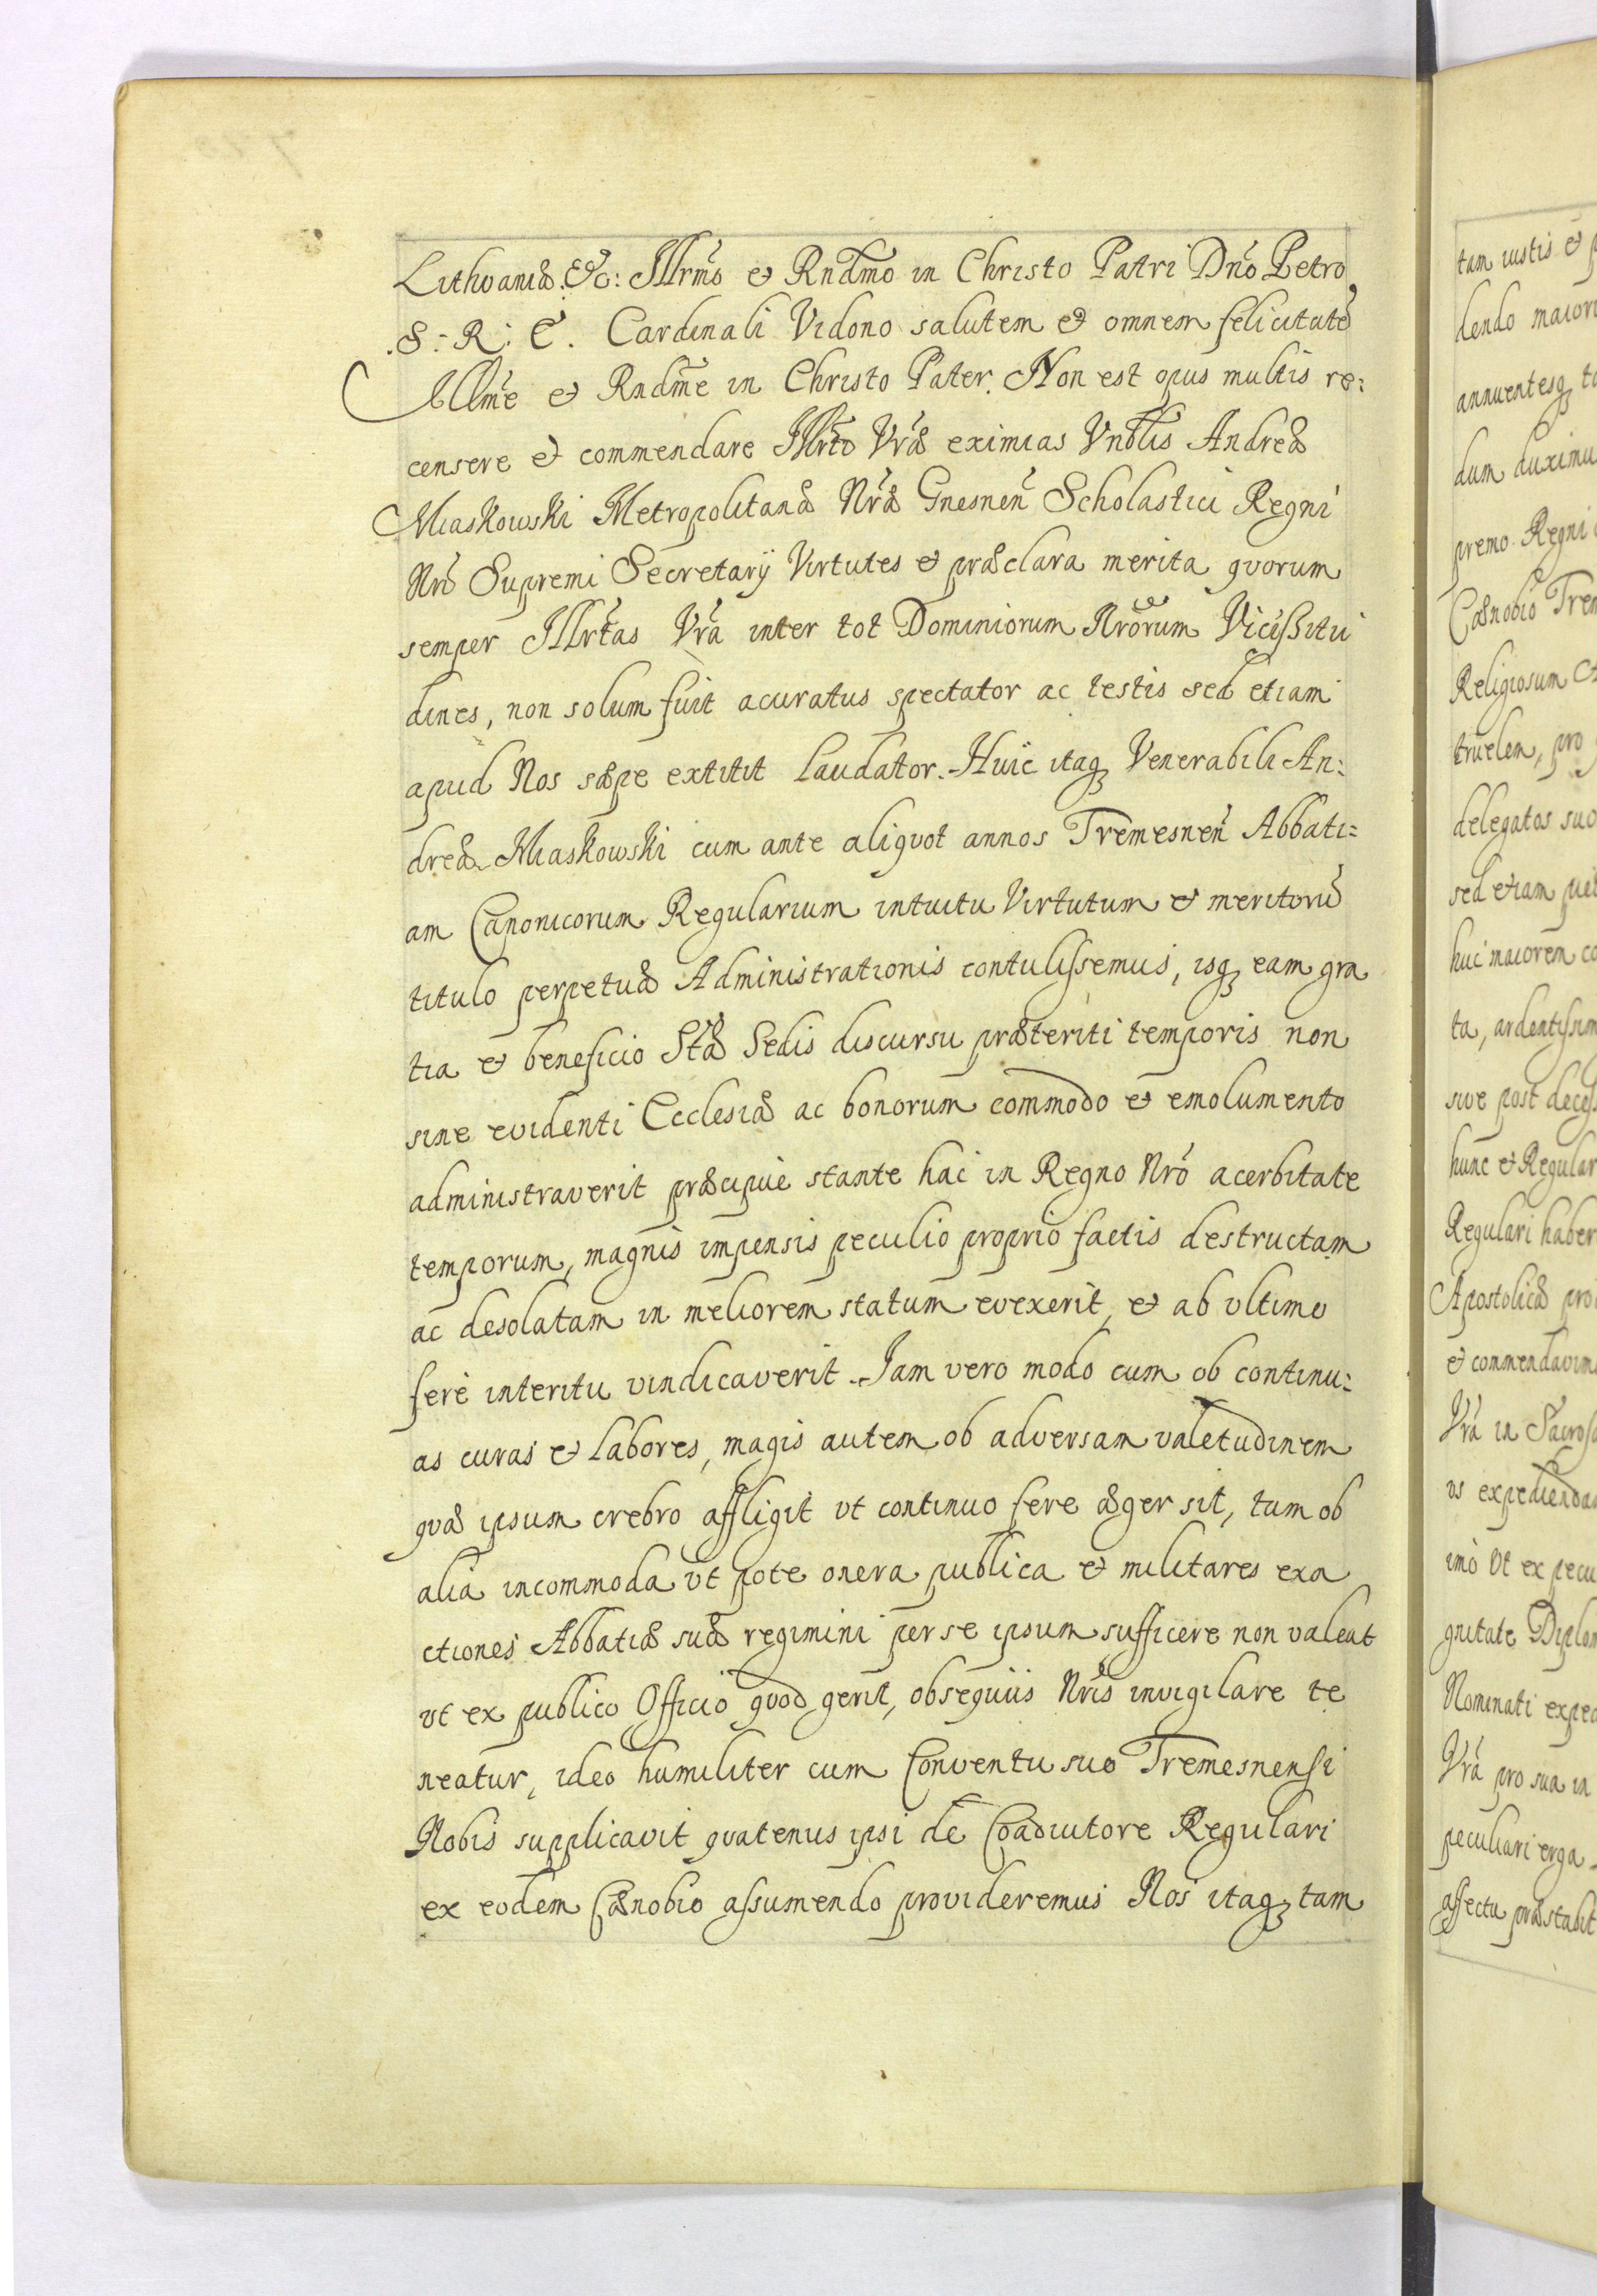 Lithvaniæ. &c: Illrmo et Rndmo in Christo Patri Dno Petro
S: R: E. Cardinali Vidono salutem et omnem felicitatē
Illme et Rndme in Christo Pater. Non est opus multis re:
censere et commendare Illrto Vræ eximias Vnblis Andreæ
Miaskowski Metropolitanæ Nræ Gnesnen Scholastici Regni
Nri Supremi Secretarÿ Virtutes et præclara merita qvorum
semper Illrtas Vra inter tot Dominiorum Nrorum Vicissitu
dines, non solum fuit acuratus spectator ac testis sed etiam
apud Nos sæpe extitit laudator. Huic itaq Venerabili An:
dreæ Miaskowski cum ante aliqvot annos Tremesnen Abbati=
am Canonicorum Regularium intuitu Virtutum et meritorū
titulo perpetuæ Administrationis contulissemus, isq eam gra
tia et beneficio Stæ Sedis discursu præteriti temporis non
sine evidenti Ecclesiæ ac bonorum commodo et emolumento
administraverit præcipuè stante hac in Regno Nro acerbitate
temporum, magnis impensis peculio proprio factis destructam
ac desolatam in meliorem statum evexerit, et ab vltimo
ferè interitu vindicaverit. Jam vero modo cum ob continu:
as curas et labores, magis autem ob adversam valetudinem
qvæ ipsum crebro affligit vt continuo fere æger sit, tum ob
alia incommoda vt pote onera publica et militares exa
ctiones Abbatiæ suæ regimini per se ipsum sufficere non valeat
vt ex publico Officio qvod gerit, obseqviis Nris invigilare te
neatur, ideo humiliter cum Conventu suo Tremesnensi
Nobis supplicavit qvatenus ipsi de Coadiutore Regulari
ex eodem Cænobio assumendo provideremus Nos itaq tam
tam iustis et
dendo maiori
annuentesq
dum duximu
premo Regni
Cænobio Trem
Religiosum
truelem, pro
delegatos suo
sed etiam
huc maiorem co
ta, ardentissim
sive post decess
hunc et Regular
Regulari haber
Apostolicæ pro
et commendavim
Vra in Sacros
vs expediendas
imò vt ex pecu
gnitate Diplom
Nominati exped
Vra pro sua in
peculiari erga
affectu præstabit